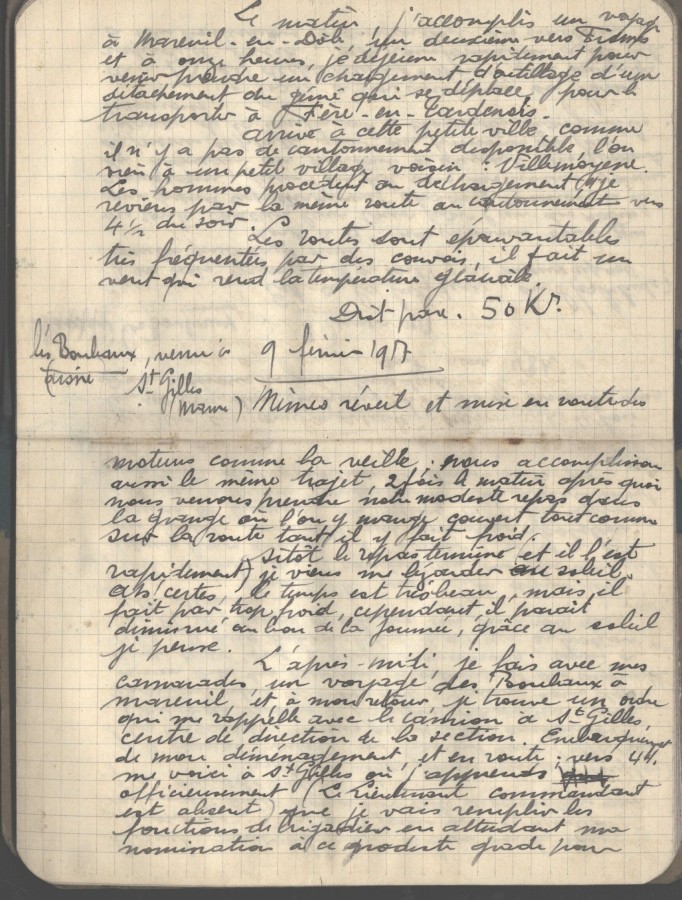 Le matin, j'accomplis un voyage
à Mareuil-en-Dôle, un deuxième vers Fismes
et à onze heures, je déjeune rapidement pour
venir prendre un chargement d'outillage d'un
détachement du génie qui se déplace, pour le
transporter à Fère-en-Tardenois.
arrivé à cette petite ville, comme
il n'y a pas de cantonnement disponible, l'on
vien à un petit village voisin : Villemoyene.
Les hommes procèdent au déchargement et je
reviens par la même route au cantonnement vers
4 1/2 du soir.
Les routes sont épouvantables
très fréquentées par des convois, il fait un
vent qui rend la température glaciale.
Dist parc. 50 Km.
les Bouleaux, venu à 9 février 1917
(aisne St Gilles
(Marne) Mêmes réveil et mise en route des
moteurs comme la veille ; nous accomplissons
aussi le même trajet, 2 fois le matin après quoi
nous venons prendre notre modeste repas dans
la grange où l'on y mange couvert tout comme
sur la route tant il y fait froid.
Sitôt le repas terminé (et il l'est
rapidement) je viens me lézarder au soleil.
Ah certes, le temps est très beau, mais il
fait par trop froid, cependant il parait
diminué au bon de la journée, grâce au soleil
je pense.
L'après-midi, je fais avec mes
camarades un voyage des Bouleaux à
Mareuil, et à mon retour, je trouve un ordre
qui me rappelle avec le camion à St Gilles,
centre de direction de la section. Embarquement
de mon déménagement, et en route ; vers 4 H.
me voici à St Gilles où j'apprends
officieusement (Le Lieutenant commandant
est absent) que je vais remplir les
fonctions de brigadier en attendant ma
nomination à ce modeste grade pour